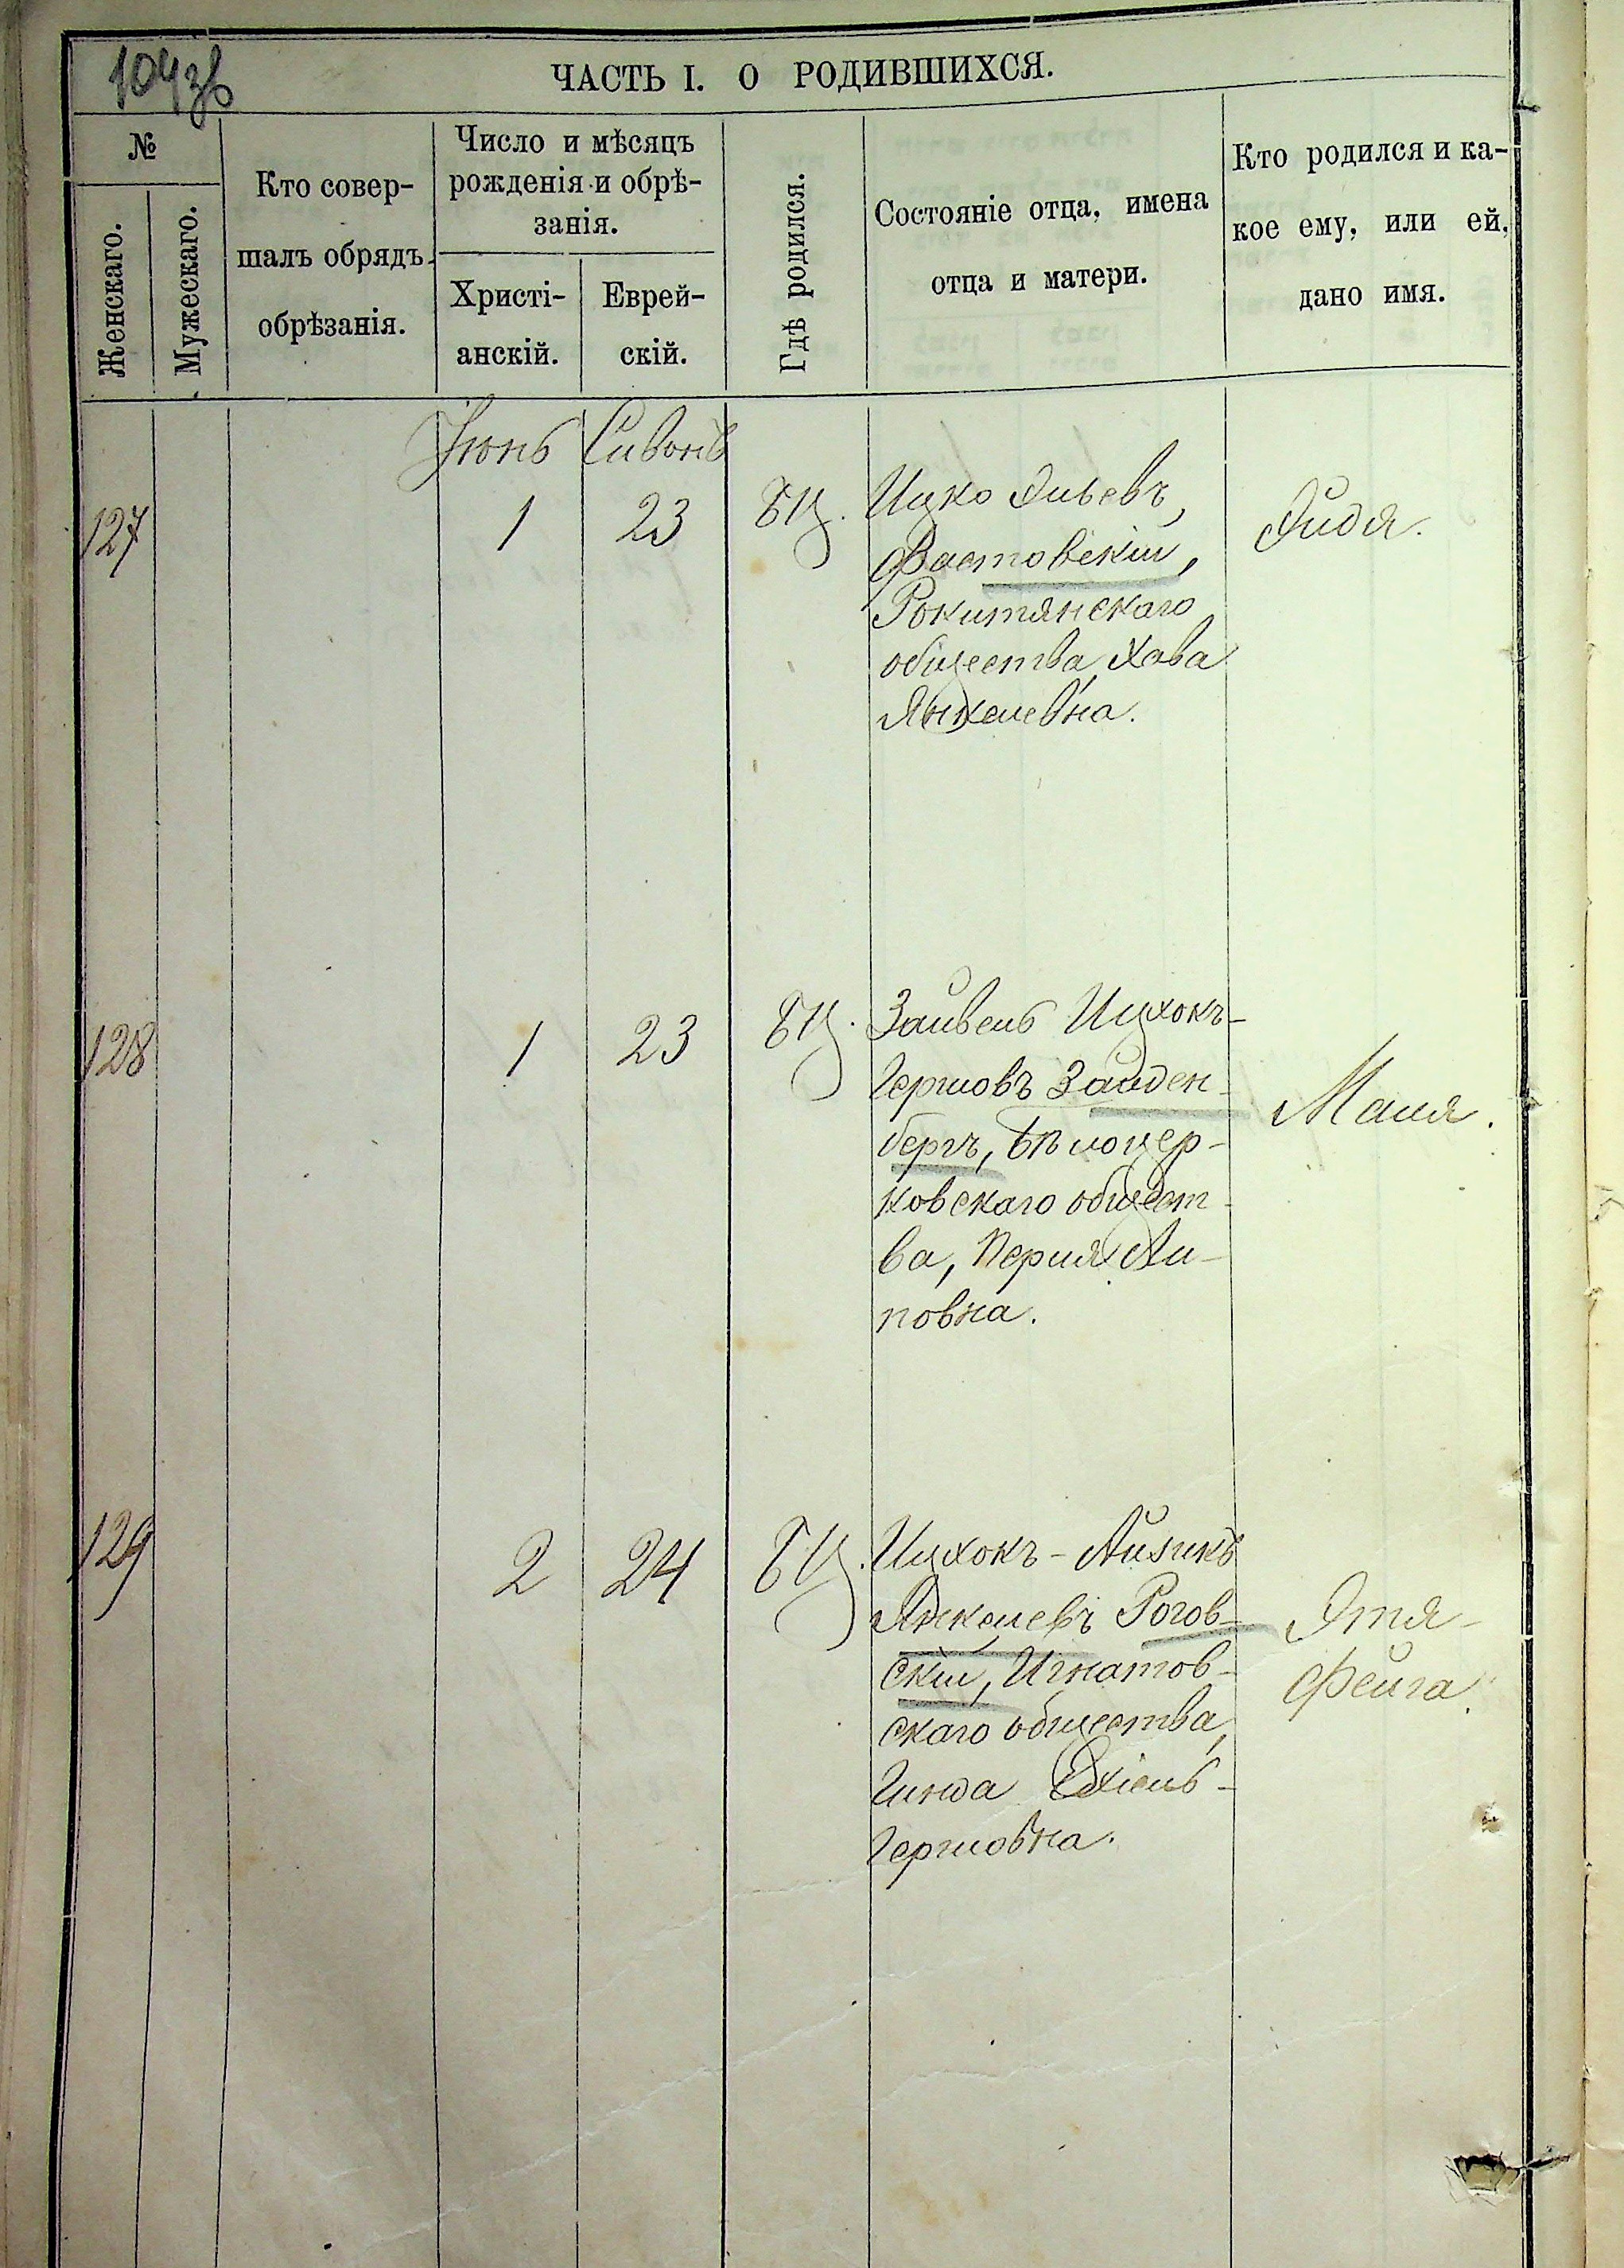 104зв
ЧАСТЬ I. О РОДИВШИХСЯ.
№
Женскаго.
Мужескаго.
Кто совер-
шалъ обрядъ
обрѣзанія.
Число и мѣсяцъ
рожденія и обрѣ-
занія.
Христі-
анскій.
Еврей-
скій.
Гдѣ родился.
Состояніе отца, имена
отца и матери.
Кто родился и ка-
кое ему, или ей,
дано имя.
Іюнь Сивонъ
127 1 23 БЦ. Ицко Эльевъ,
Фастовскій,
Рокитянскаго
общества, Хава
Янкелевна.
Эйдя.
128 1 23 БЦ. Зайвель Ицхокъ-
Гершовъ Зайден-
бергъ, Бѣлоцер-
ковскаго общест-
ва, Перля Ли-
повна.
Маля.
129 2 24 БЦ. Ицхокъ-Айзикъ
Янкелевъ Рогов-
скій, Игнатов-
скаго общества,
Гинда Ехіель-
Гершовна.
Этя-
Фейга.